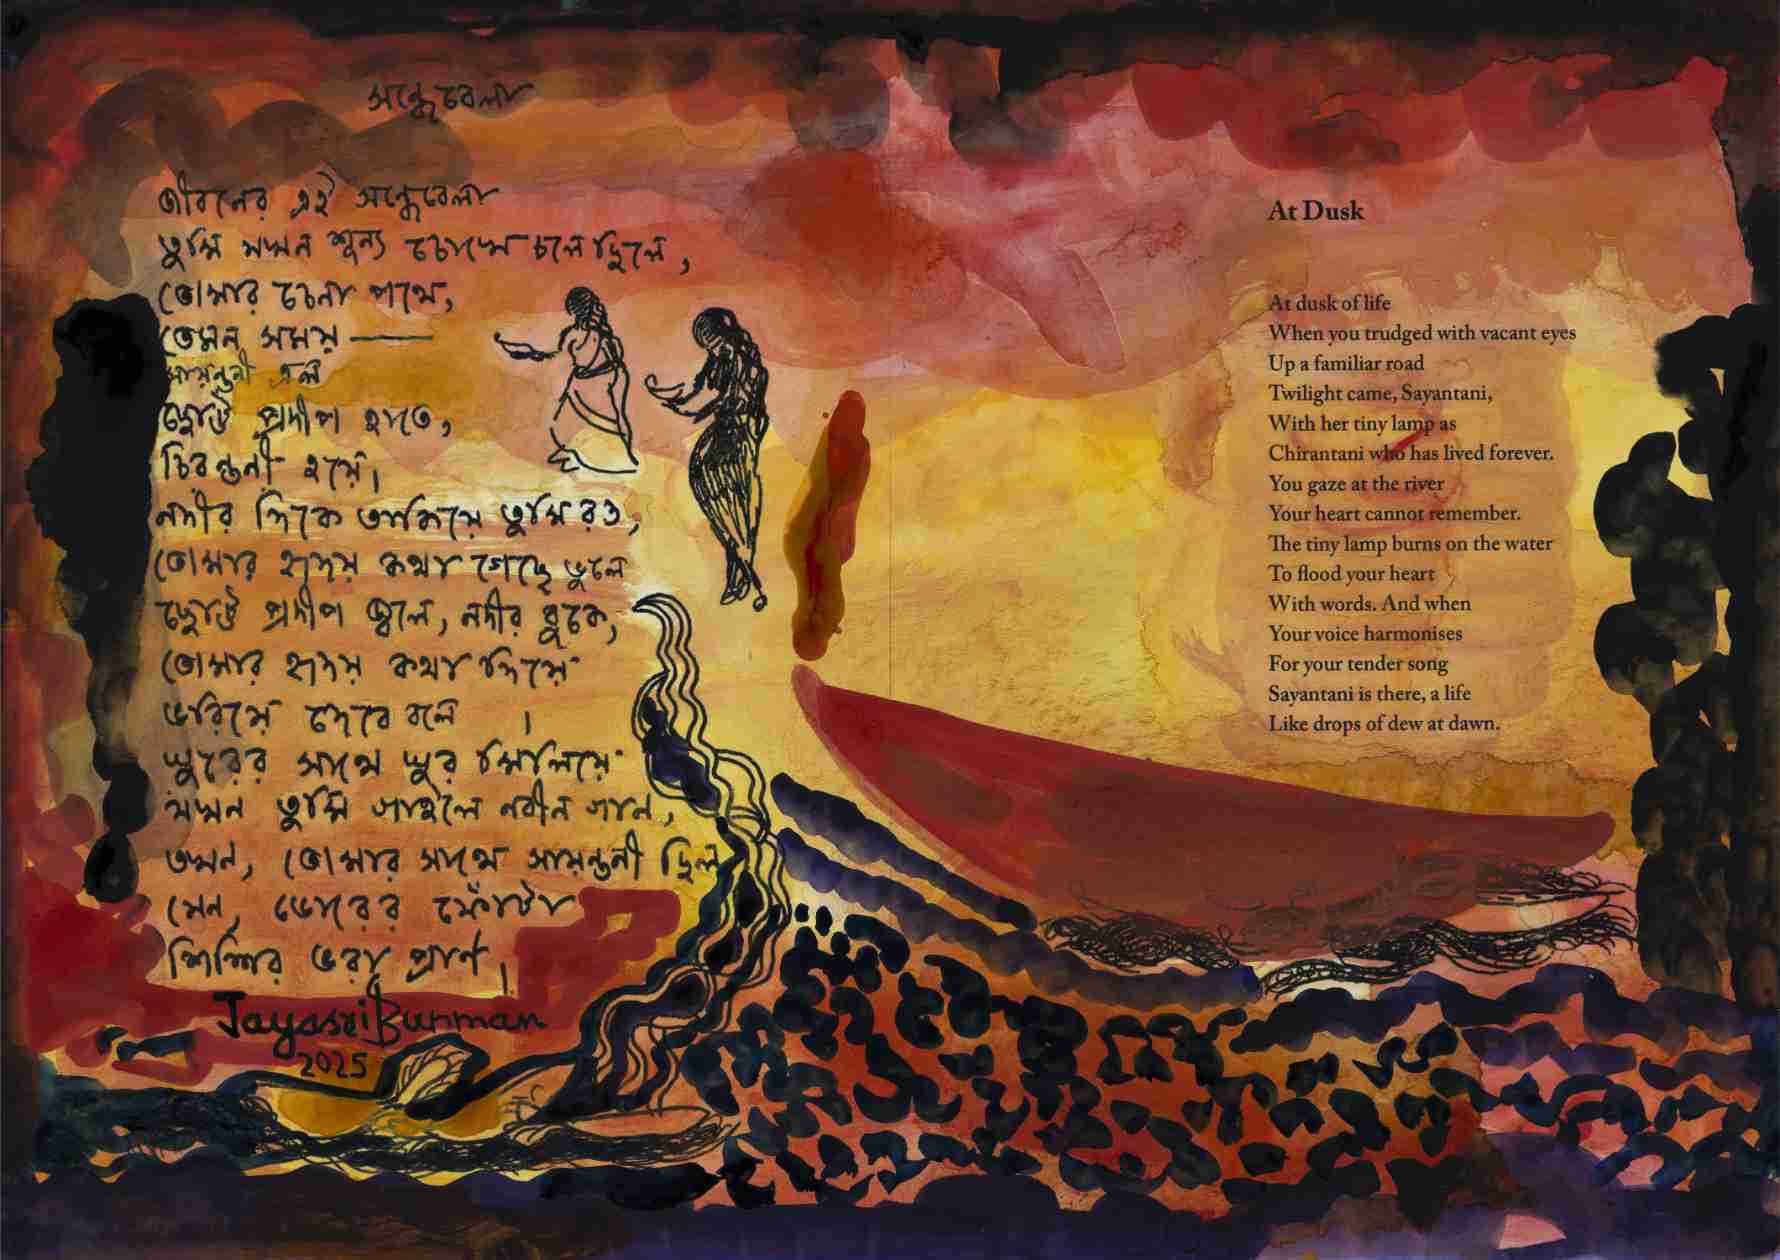 সন্ধেবেলা
জীবনের এই সন্ধেবেলা
তুমি যখন শূন্য চোখে চলেছিলে,
তোমার চেনা পথে,
তেমন সময় —
সায়ন্তনী এল
ছোট্ট প্রদীপ হাতে,
চিরন্তনী হয়ে।
নদীর দিকে তাকিয়ে তুমি রও,
তোমার হৃদয় কথা গেছে ভুলে
ছোট্ট প্রদীপ জ্বলে, নদীর বুকে,
তোমার হৃদয় কথা দিয়ে
ভরিয়ে দেবে বলে ।
সুরের সাথে সুর মিলিয়ে
যখন তুমি গাইলে নবীন গান,
তখন, তোমার সাথে সায়ন্তনী ছিল
যেন, ভোরের ফোঁটা
শিশির ভরা প্রাণ।
Jayasri Burman
2025
At Dusk
At dusk of life
When you trudged with vacant eyes
Up a familiar road
Twilight came, Sayantani,
With her tiny lamp as
Chirantani who has lived forever.
You gaze at the river
Your heart cannot remember.
The tiny lamp burns on the water
To flood your heart
With words. And when
Your voice harmonises
For your tender song
Sayantani is there, a life
Like drops of dew at dawn.